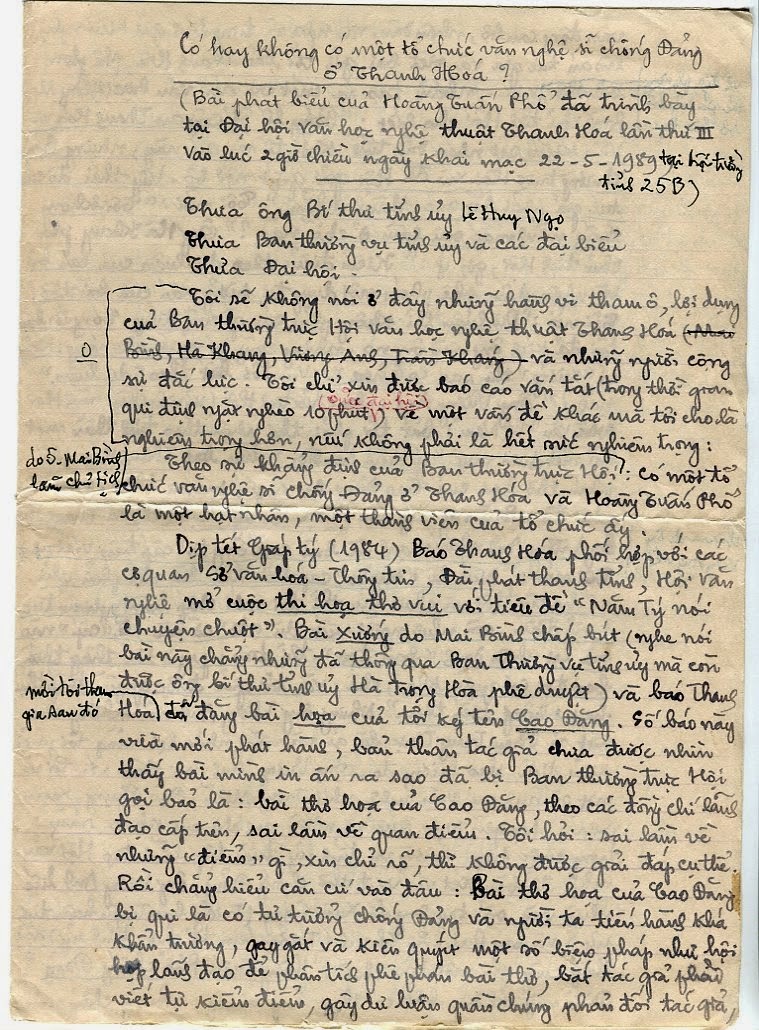 Có hay không có một tổ chức văn nghệ sĩ chống Đảng
ở Thanh Hoá ?
(Bài phát biểu của Hoàng Tuấn Phổ đã trình bày
tại Đại hội văn học nghệ thuật Thanh Hoá lần thứ III
vào lúc 2 giờ chiều ngày khai mạc 22-5-1989, tại hội trường
tỉnh 25B)
Thưa ông Bí thư tỉnh ủy Lê Huy Ngọ
Thưa Ban thường vụ tỉnh ủy và các đại biểu
Thưa Đại hội.
Tôi sẽ không nói ở đây những hành vi tham ô, lợi dụng
của Ban thường trực Hội văn học nghệ thuật Thanh Hoá (Mai
Bình, Hà Khang, Vương Anh, Trần Khang) và những người cộng
0
sự đắc lực. Tôi chỉ xin được báo cáo vắn tắt (trong thời gian
qui định ngặt nghèo 10 phút) về một vấn đề khác mà tôi cho là
(Được đại hội)
nghiêm trọng hơn, nếu không phải là hết sức nghiêm trọng:
do S. Mai Bình
làm chủ tịch
Theo sự khẳng định của Ban thường trực Hội: Có một tổ
chức văn nghệ sĩ chống Đảng ở Thanh Hóa và Hoàng Tuấn Phổ
là một hạt nhân, một thành viên của tổ chức ấy.
Dịp tết Giáp tý (1984) Báo Thanh Hóa phối hợp với các
cơ quan Sở văn hoá - Thông tin, Đài phát thanh tỉnh, Hội văn
nghệ mở cuộc thi họa thơ vui với tiêu đề "Năm Tý nói
chuyện chuột". Bài Xướng do Mai Bình chấp bút (nghe nói
bài này chẳng những đã thông qua Ban Thường vụ tỉnh ủy mà còn
được ông bí thư tỉnh ủy Hà Trọng Hòa phê duyệt) và báo Thanh
mời tôi tham
gia sau đó
Hoá đã đăng bài họa của tôi ký tên Cao Đăng. Số báo này
vừa mới phát hành, bản thân tác giả chưa được nhìn
thấy bài mình in ấn ra sao đã bị Ban thường trực Hội
gọi bảo là: bài thơ họa của Cao Đăng, theo các đồng chí lãnh
đạo cấp trên, sai lầm về quan điểm. Tôi hỏi: sai lầm về
những "điểm" gì, xin chỉ rõ, thì không được giải đáp cụ thể.
Rồi chẳng hiểu căn cứ vào đâu: Bài thơ họa của Cao Đăng
bị qui là có tư tưởng chống Đảng và người ta tiến hành khá
khẩn trương, gay gắt và kiên quyết một số biện pháp như hội
họp lãnh đạo để phân tích phê phán bài thơ, bắt tác giả phải
viết tự kiểm điểm, gây dư luận quần chúng phản đối tác giả,